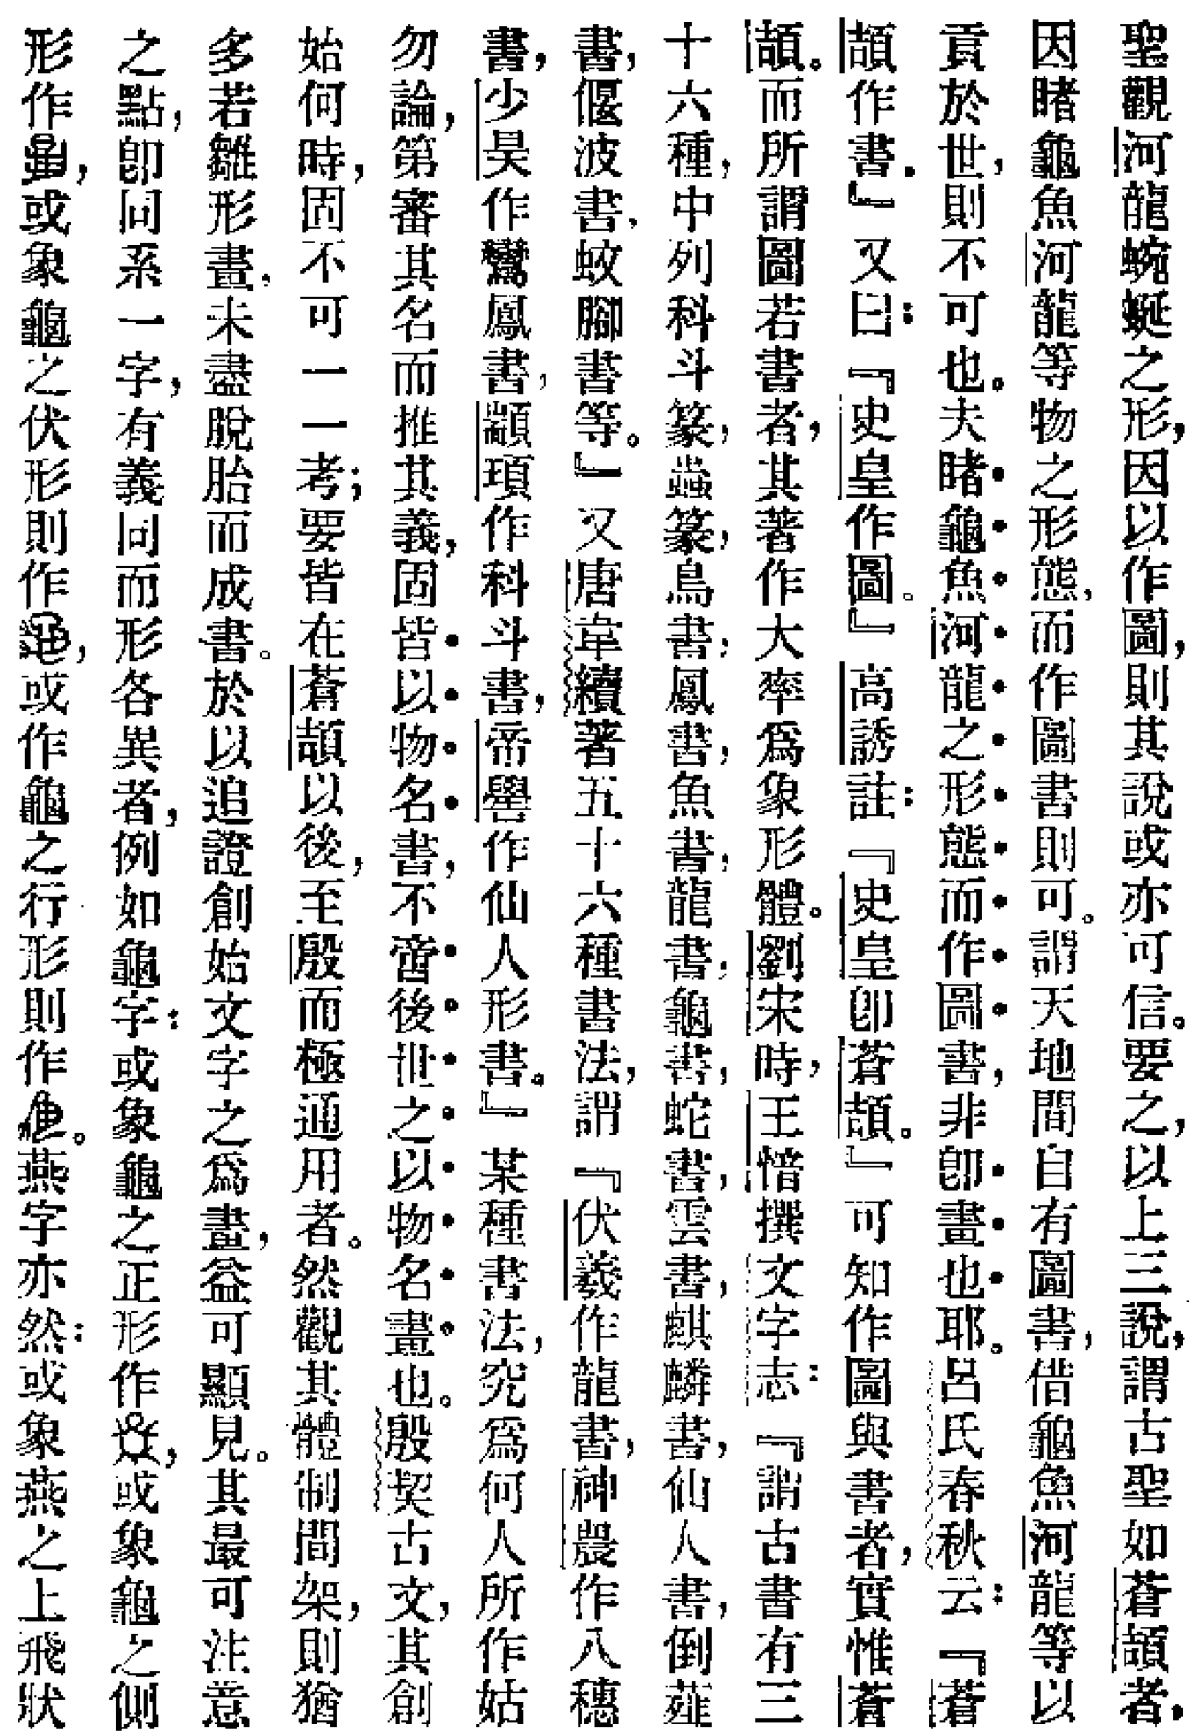 聖觀河龍蜿蜒之形，因以作圖，則其說或亦可信。要之，以上三說，謂古聖如蒼頡者，
因睹龜魚河龍等物之形態，而作圖書則可。謂天地間自有圖書，借龜魚河龍等以
貢於世，則不可也。夫睹龜魚河龍之形態而作圖書，非卽畫也耶。呂氏春秋云：『蒼
頡作書。』又曰：『史皇作圖。』高誘註：『史皇卽蒼頡。』可知作圖與書者，實惟蒼
頡。而所謂圖若書者，其著作大率爲象形體。劉宋時，王愔撰文字志：『謂古書有三
十六種，中列科斗篆，蟲篆，鳥書，鳳書，魚書，龍書，龜書，蛇書，雲書，麒麟書，仙人書，倒薤
書，偃波書，蚊腳書等。』又唐韋續著五十六種書法，謂『伏羲作龍書，神農作八穗
書，少昊作鸞鳳書，顓頊作科斗書，帝嚳作仙人形書。』某種書法，究爲何人所作姑
勿論，第審其名而推其義，固皆以物名書，不啻後世之以物名畫也。殷契古文，其創
始何時，固不可一一考；要皆在蒼頡以後，至殷而極通用者。然觀其體制間架，則猶
多若雛形畫，未盡脫胎而成書。於以追證創始文字之爲畫，益可顯見。其最可注意
之點，卽同系一字，有義同而形各異者，例如龜字：或象龜之正形作，或象龜之側
形作，或象龜之伏形則作，或作龜之行形則作。燕字亦然：或象燕之上飛狀